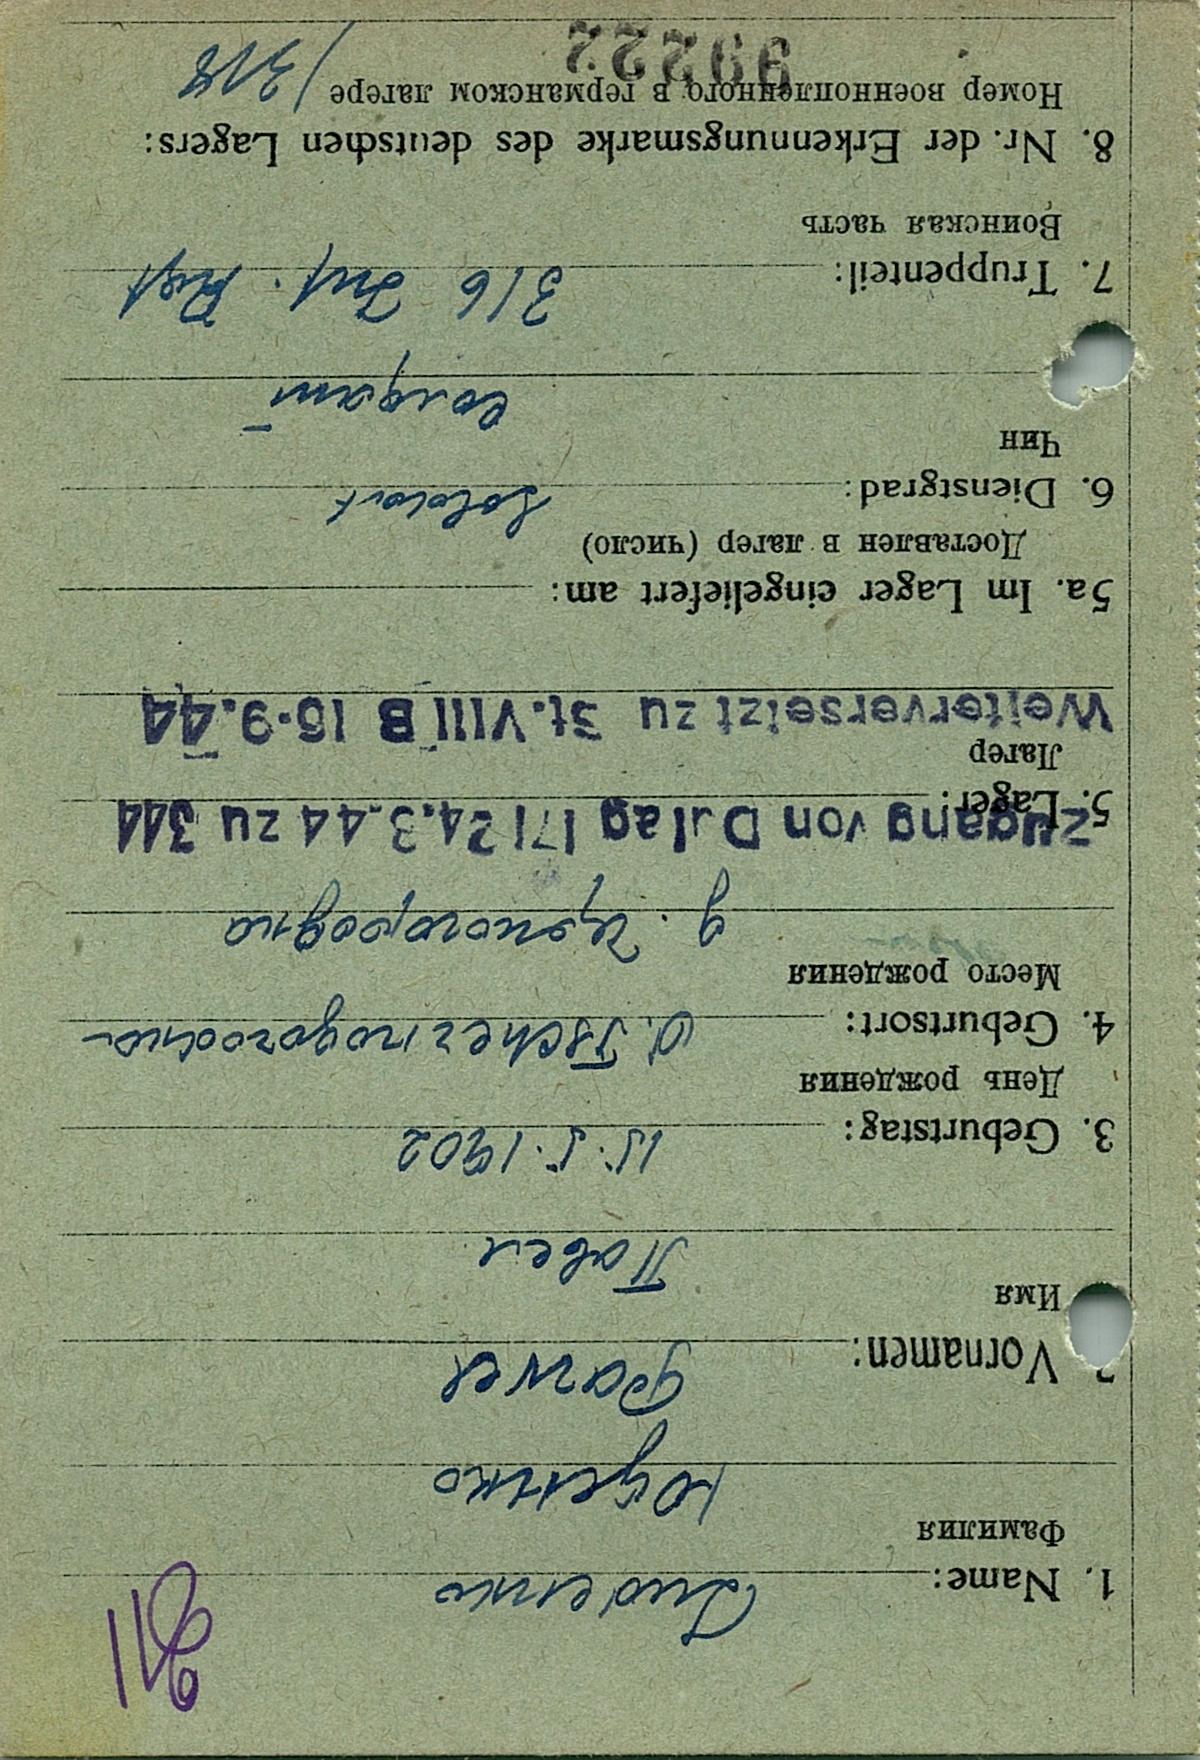 1. Name: Judenko
Фамилия
Юденко
2. Vornamen: Pawel
Имя
Павел
3. Geburtstag: 15.5.1902
День рождения
4. Geburtsort: d. Tschernogorodna
Место рождения
д.
Zugang von Dulag 171 24.3.44 zu 344
5. Lager:
Лагер
Weiterversetzt zu St. VIII B 16.9.44
5a. Im Lager eingeliefert am:
Доставлен в лагер (число)
6. Dienstgrad: Soldat
Чин
солдат
7. Truppenteil: 316 Inf. Rgt
Воинская часть
8. Nr. der Erkennungsmarke des deutschen Lagers:
Номер военнопленного в германском лагере /318
99222